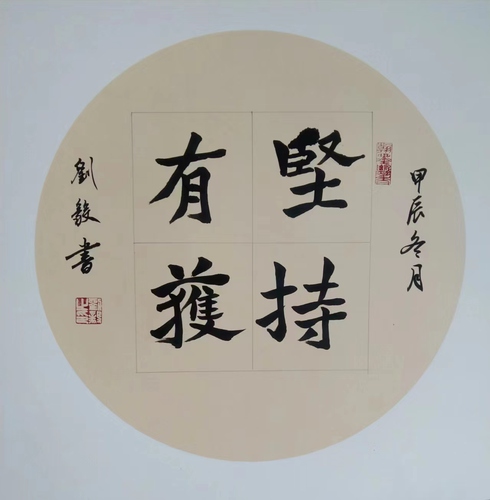 甲辰冬月
堅持
有獲
劉毅書